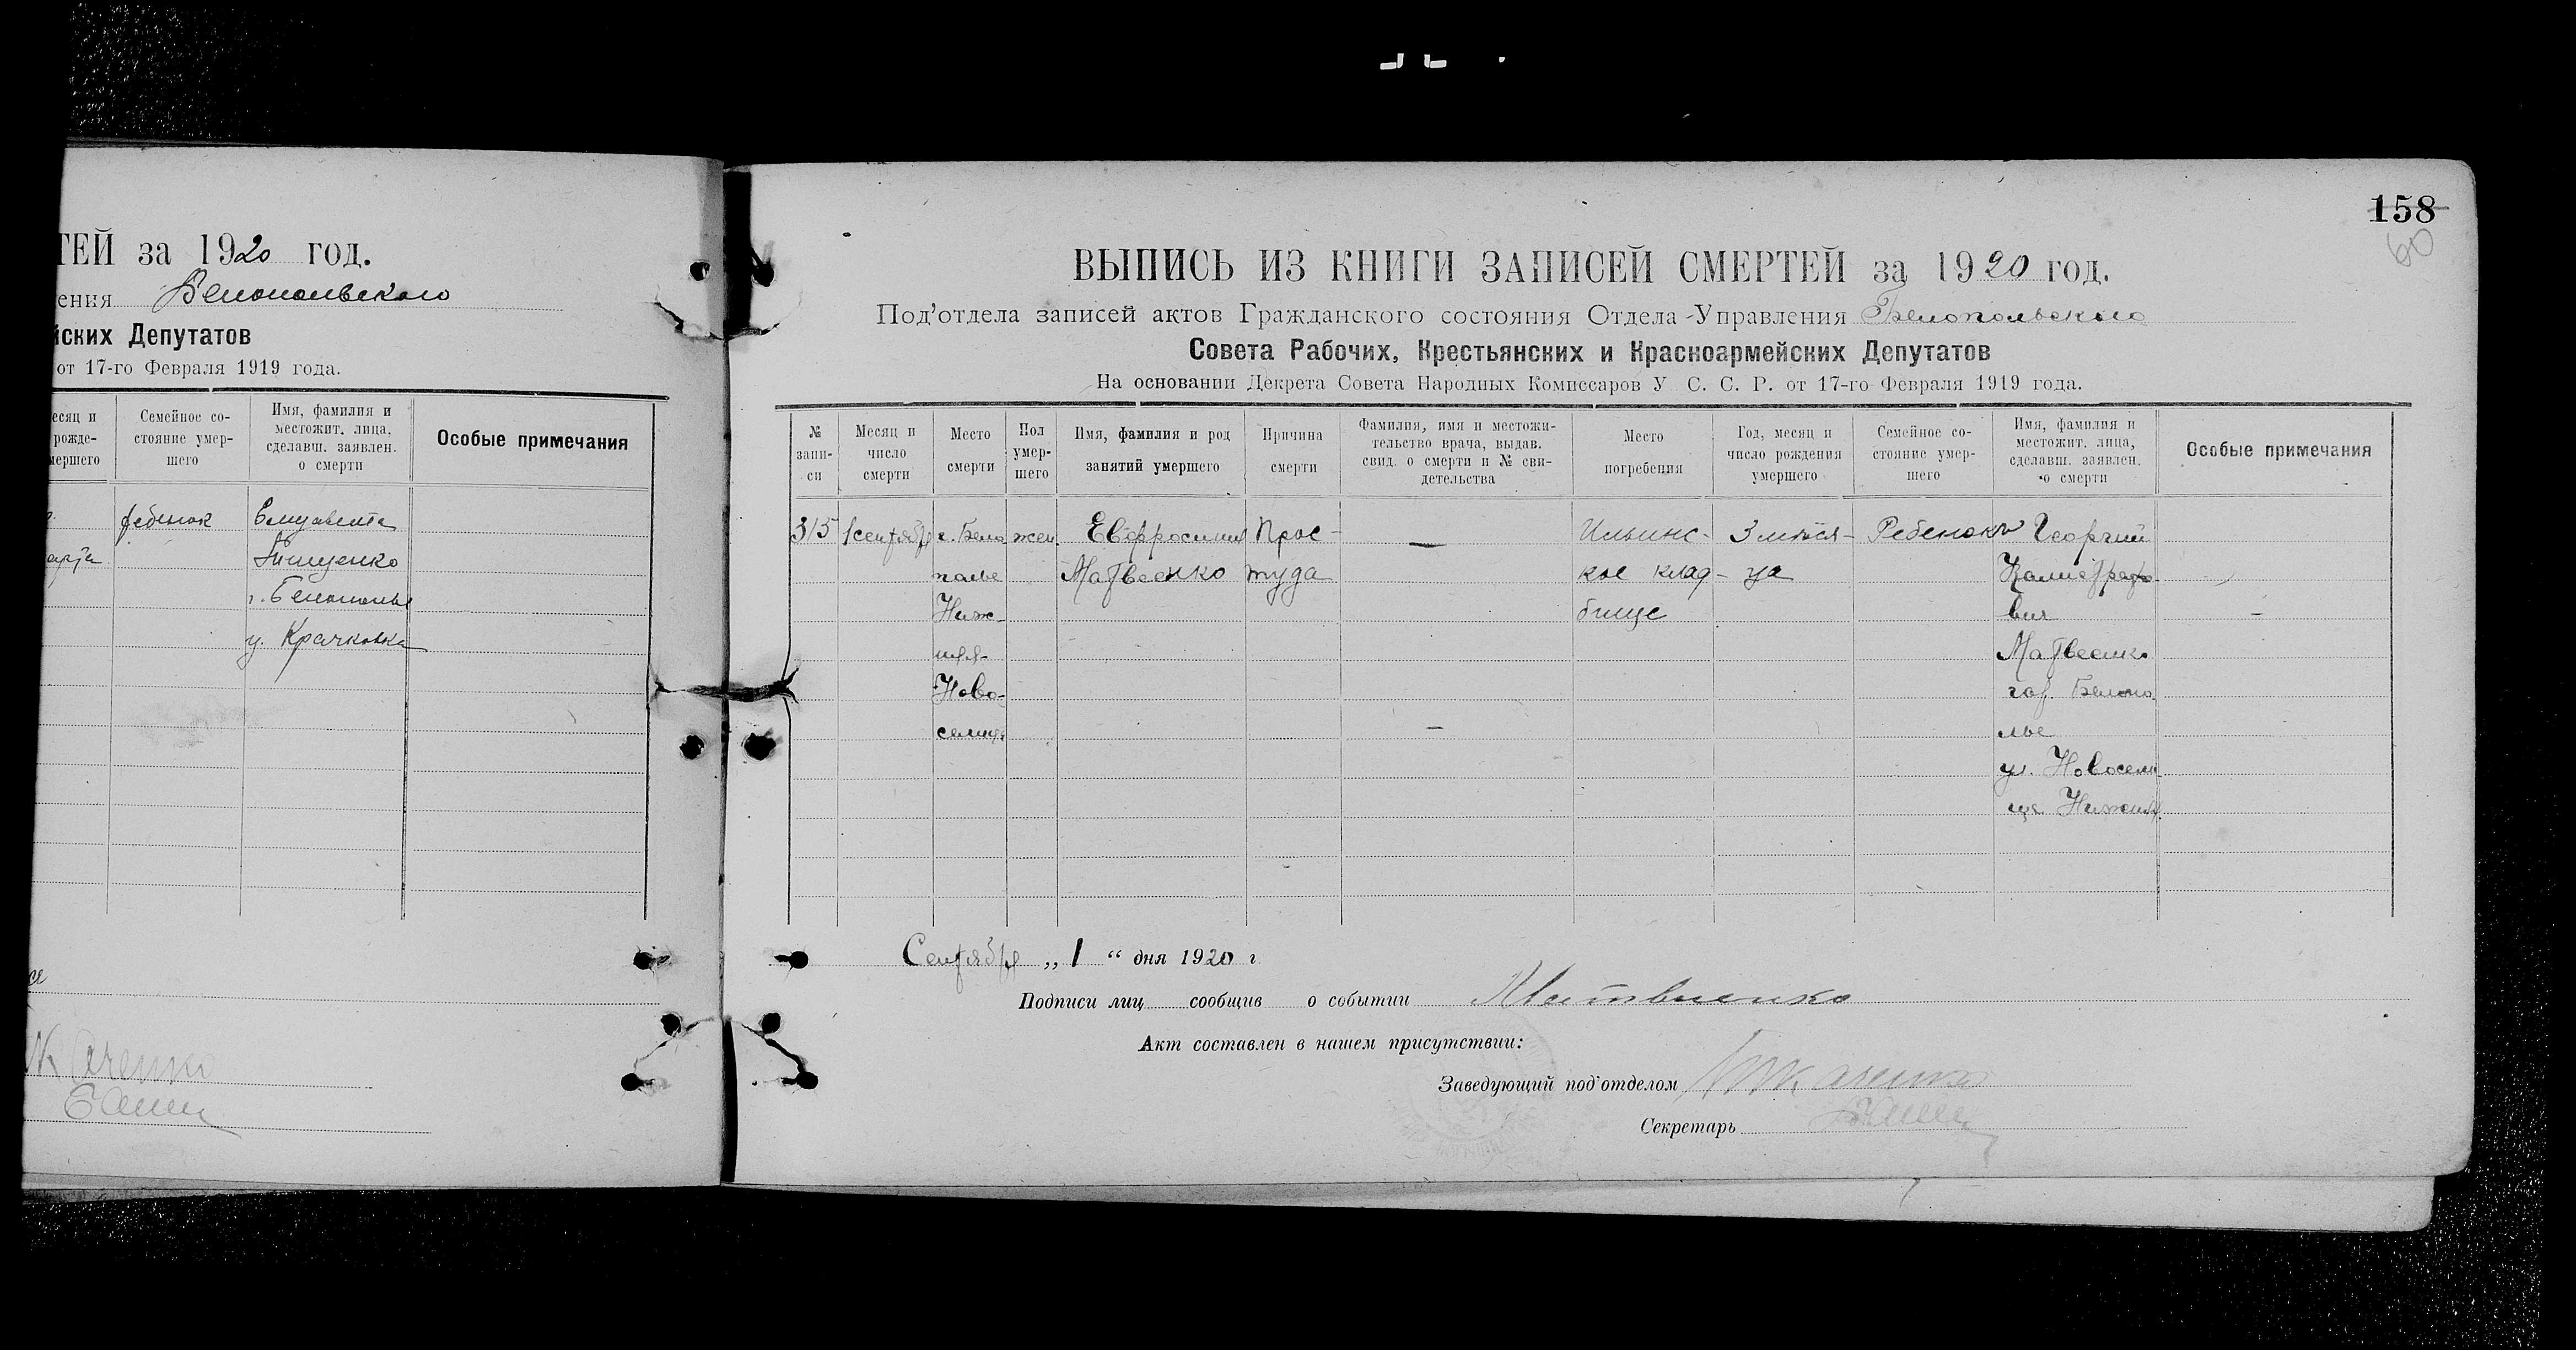 ТЕЙ за 1920 год.
ения Белопольского
йских Депутатов
от 17-го Февраля 1919 года.
есяц и
рожде-
мершего
Семейное со-
стояние умер-
шего
Имя, фамилия и
местожит. лица,
сделавш. заявлен.
о смерти
Особые примечания
ребенок
Елизавета
Тищенко
г. Белополье
у. Крачковка
ся
каченко
158
60
ВЫПИСЬ ИЗ КНИГИ ЗАПИСЕЙ СМЕРТЕЙ за 1920 год.
Под'отдела записей актов Гражданского состояния Отдела Управления Белопольского
Совета Рабочих, Крестьянских и Красноармейских Депутатов
На основании Декрета Совета Народных Комиссаров У. С. С. Р. от 17-го Февраля 1919 года.
№
запи-
си
Месяц и
число
смерти
Место
смерти
Пол
умер-
шего
Имя, фамилия и род
занятий умершего
Причина
смерти
Фамилия, имя и местожи-
тельство врача, выдав.
свид. о смерти и № сви-
детельства
Место
погребения
Год, месяц и
число рождения
умершего
Семейное со-
стояние умер-
шего
Имя, фамилия и
местожит. лица,
сделавш. заявлен.
о смерти
Особые примечания
315
1 сентября
г. Бело
полье
Ниж-
няя-
Ново-
селица
жен.
Евфросиния
Матвеенко
Прос-
туда
—
Ильинс-
кое клад-
бище
3 мѣся-
ца
Ребенокъ
Георгий
Калистрато
вич
Матвеенко
гор. Белопо
лье
ул. Новосели
ще Нижняя
Сентября „ 1 “ дня 1920 г
Подписи лиц сообщив о событии Матвиенко
Акт составлен в нашем присутствии:
Заведующий под'отделом Ткаченко
Секретарь